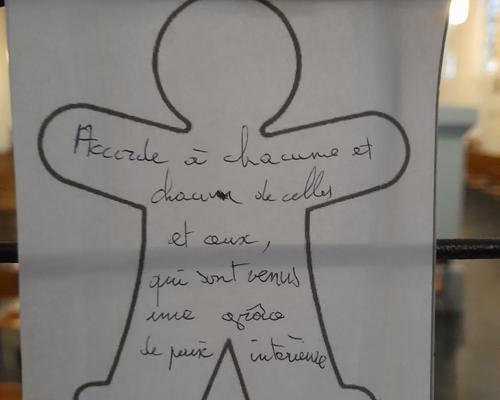 Accorde à chacune et
chacun de celles
et ceux,
qui sont venus
une grâce
de paix intérieure